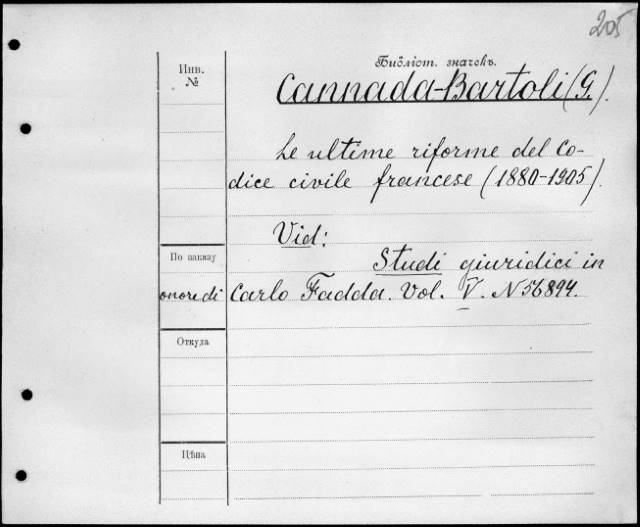 205
Библіот. значекъ.
Инв.
№
Cannada-Bartoli (G.).
Le ultime riforme del Co-
dice civile francese (1880-1905).
Vid:
По заказу
Studi giuridici in
onore di Carlo Fadda. Vol. V. N 56894.
Откуда
Цѣна